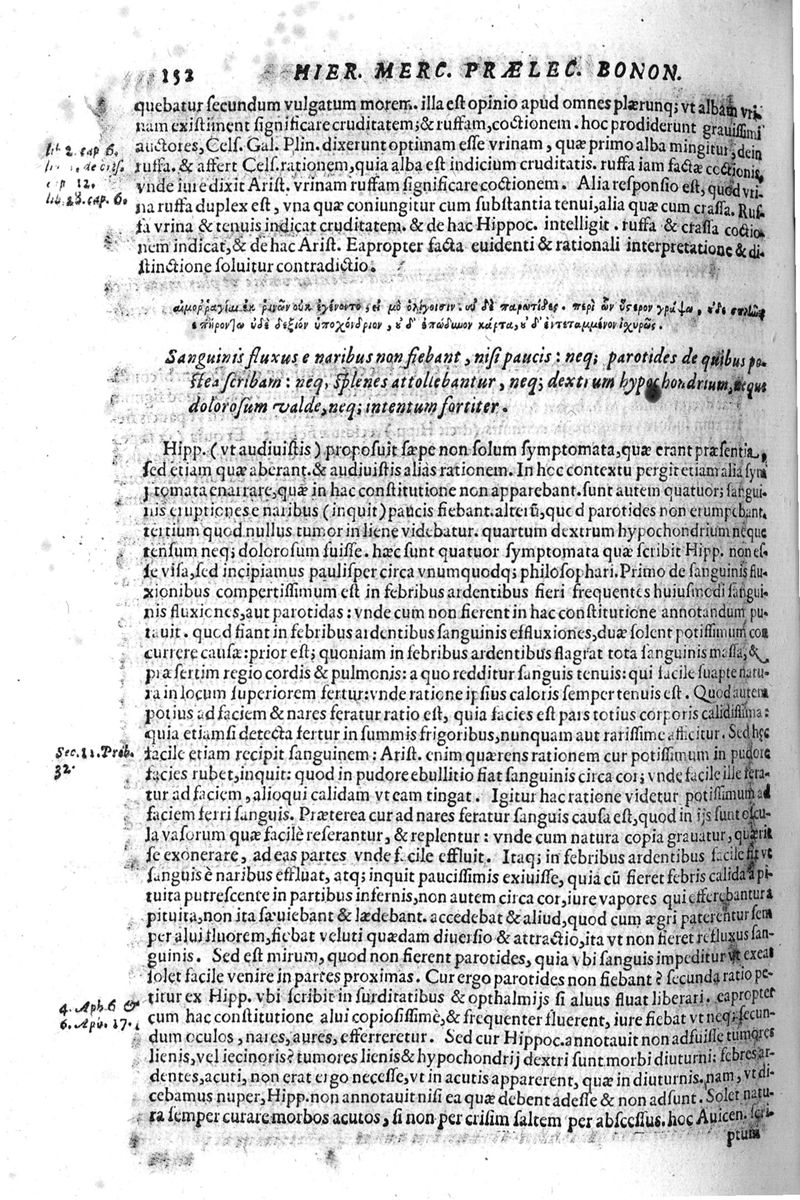 152 HIER. MERC. PRÆLEC. BONON.
quebatur ſecundum vulgatum morem. illa eſt opinio apud omnes plærunq; vt albam vri-
nam exiſtiment ſignificare cruditatem; & ruffam, coctionem. hoc prodiderunt grauiſſimi
auctores, Celſ. Gal. Plin. dixerunt optimam eſſe vrinam, quæ primo alba mingitur, dein
ruffa. & affert Celſ. rationem, quia alba eſt indicium cruditatis. ruffa iam factæ coctionis,
vnde iure dixit Ariſt. vrinam ruffam ſignificare coctionem. Alia reſponſio eſt, quod vri-
na ruffa duplex eſt, vna quæ coniungitur cum ſubſtantia tenui, alia quæ cum craſſa. Ruf-
fa vrina & tenuis indicat cruditatem. & de hac Hippoc. intelligit. ruffa & craſſa coctio-
nem indicat, & de hac Ariſt. Eapropter facta euidenti & rationali interpretatione & di-
ſtinctione ſoluitur contradictio.
lib. 2. cap 6.
cap 12.
lib. 28. cap. 6.
αἱμοῤῥαγίαι ἐκ ῥινῶν οὐκ ἐγένοντο, εἰ μὴ ὀλίγοισιν. οὐ δὲ παρωτίδες. περὶ ὧν ὕςερον γράψω, οὐδὲ
ἐπῄροντο οὐδὲ δεξιὸν ὑποχόνδριον, οὐδ' ἐπώδυνον κάρτα, οὐδ' ἐντεταμμένον ἰχυρῶς.
Sanguinis fluxus e naribus non fiebant, niſi paucis: neq; parotides de quibus po-
ſtea ſcribam: neq, ſplenes attollebantur, neq; dextrum hypochondrium, neque
doloroſum valde, neq; intentum fortiter.
Hipp. (vt audiuiſtis) propoſuit ſæpe non ſolum ſymptomata, quæ erant præſentia,
ſed etiam quæ aberant. & audiuiſtis alias rationem. In hoc contextu pergit etiam alia ſym
ptomata enarrare, quæ in hac conſtitutione non apparebant. ſunt autem quatuor; ſangui-
nis eruptiones e naribus (inquit) paucis fiebant. alterũ, quod parotides non erumpebant.
tertium quod nullus tumor in liene videbatur. quartum dextrum hypochondrium neque
tenſum neq; doloroſum fuiſſe. hæc ſunt quatuor ſymptomata quæ ſcribit Hipp. non eſ-
ſe viſa, ſed incipiamus pauliſper circa vnumquodq; philoſophari. Primo de ſanguinis flu-
xionibus compertiſſimum eſt in febribus ardentibus fieri frequentes huiuſmodi ſangui-
nis fluxiones, aut parotidas: vnde cum non fierent in hac conſtitutione annotandum pu-
tauit. quod fiant in febribus ardentibus ſanguinis effluxiones, duæ ſolent potiſſimum con
currere cauſæ: prior eſt; quoniam in febribus ardentibus flagrat tota ſanguinis maſſa, &
præſertim regio cordis & pulmonis: a quo redditur ſanguis tenuis: qui facile ſuapte natu-
ra in locum ſuperiorem fertur: vnde ratione ipſius caloris ſemper tenuis eſt. Quod autem
potius ad faciem & nares feratur ratio eſt, quia facies eſt pars totius corporis calidiſſima:
quia etiamſi detecta fertur in ſummis frigoribus, nunquam aut rariſſime afficitur. Sed hęc
facile etiam recipit ſanguinem: Ariſt. enim quærens rationem cur potiſſimum in pudore
facies rubet, inquit: quod in pudore ebullitio fiat ſanguinis circa cor; vnde facile ille fera-
tur ad faciem, alioqui calidam vt eam tingat. Igitur hac ratione videtur potiſſimum ad
faciem ferri ſanguis. Præterea cur ad nares feratur ſanguis cauſa eſt, quod in ijs ſunt oſcu-
la vaſorum quæ facilè reſerantur, & replentur: vnde cum natura copia grauatur, quærit
ſe exonerare, ad eas partes vnde facile effluit. Itaq; in febribus ardentibus facile fit vt
ſanguis è naribus effluat, atq; inquit pauciſſimis exiuiſſe, quia cũ fieret febris calida à pi-
tuita putreſcente in partibus infernis, non autem circa cor, iure vapores qui efferebantur a
pituita, non ita ſæuiebant & lædebant. accedebat & aliud, quod cum ægri paterentur ſem
per alui fluorem, fiebat veluti quædam diuerſio & attractio, ita vt non fieret refluxus ſan-
guinis. Sed eſt mirum, quod non fierent parotides, quia vbi ſanguis impeditur vt exeat
ſolet facile venire in partes proximas. Cur ergo parotides non fiebant? ſecunda ratio pe-
titur ex Hipp. vbi ſcribit in ſurditatibus & opthalmijs ſi aluus fluat liberari. eapropter
cum hac conſtitutione alui copioſiſſimè, & frequenter fluerent, iure fiebat vt neq; ſecun-
dum oculos, nares, aures, efferreretur. Sed cur Hippoc. annotauit non adfuiſſe tumores
lienis, vel iecinoris? tumores lienis & hypochondrij dextri ſunt morbi diuturni: febres ar-
dentes, acuti, non erat ergo neceſſe, vt in acutis apparerent, quæ in diuturnis. nam, vt di-
cebamus nuper, Hipp. non annotauit niſi ea quæ debent adeſſe & non adſunt. Solet natu-
ra ſemper curare morbos acutos, ſi non per criſim ſaltem per abſceſſus. hoc Auicen. ſcri-
ptum
Sec. 11. Prob.
32.
4. Aph 6 &
6. Aph. 17.